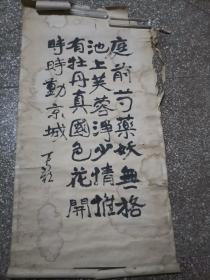 庭前芍藥妖無格
池上芙蓉淨少情惟
有牡丹真國色花開
時時動京城